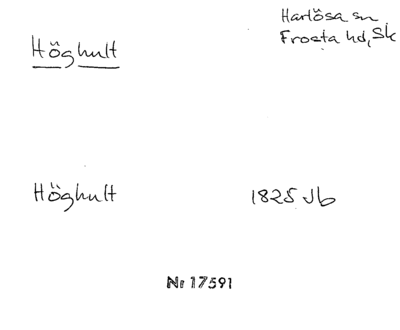 Höghult
Harlösa sn
Frosta hd, Sk
Höghult
1825 Jb
Nr 17591